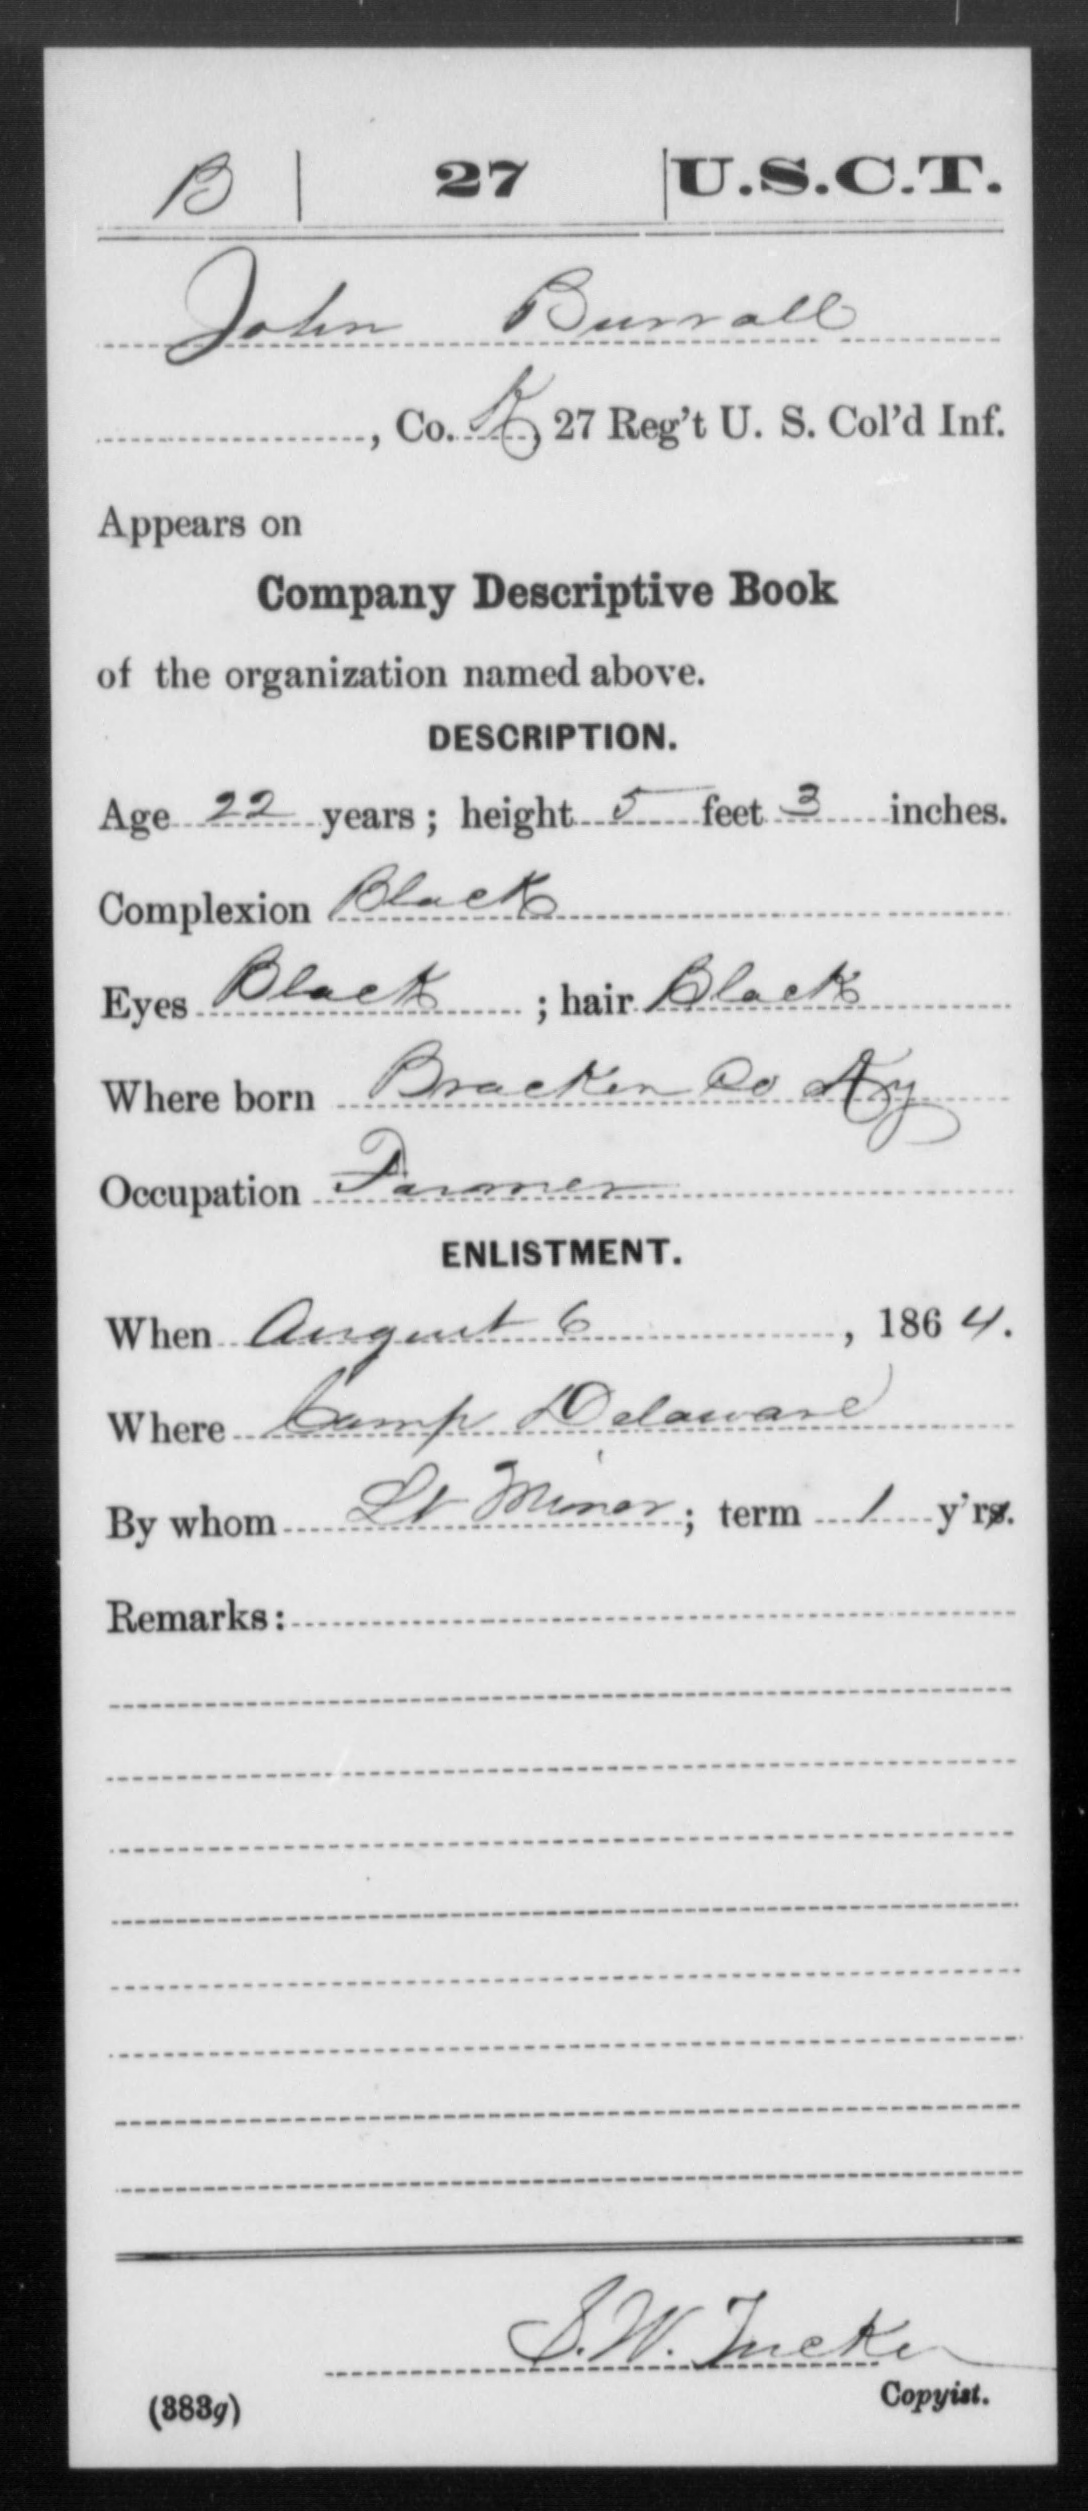 B | 27 | U.S.C.T.
John Burrall
, Co. K, 27 Reg't U. S. Col'd Inf.
Appears on
Company Descriptive Book
of the organization named above.
DESCRIPTION.
Age 22 years; height 5 feet 3 inches.
Complexion Black
Eyes Black ; hair Black
Where born Bracken Co Ky
Occupation Farmer
ENLISTMENT.
When August 6, 1864.
Where Camp Delaware
By whom Lt Minor; term 1 y'rs.
Remarks:
S. W. Tucker
Copyist.
(383g)